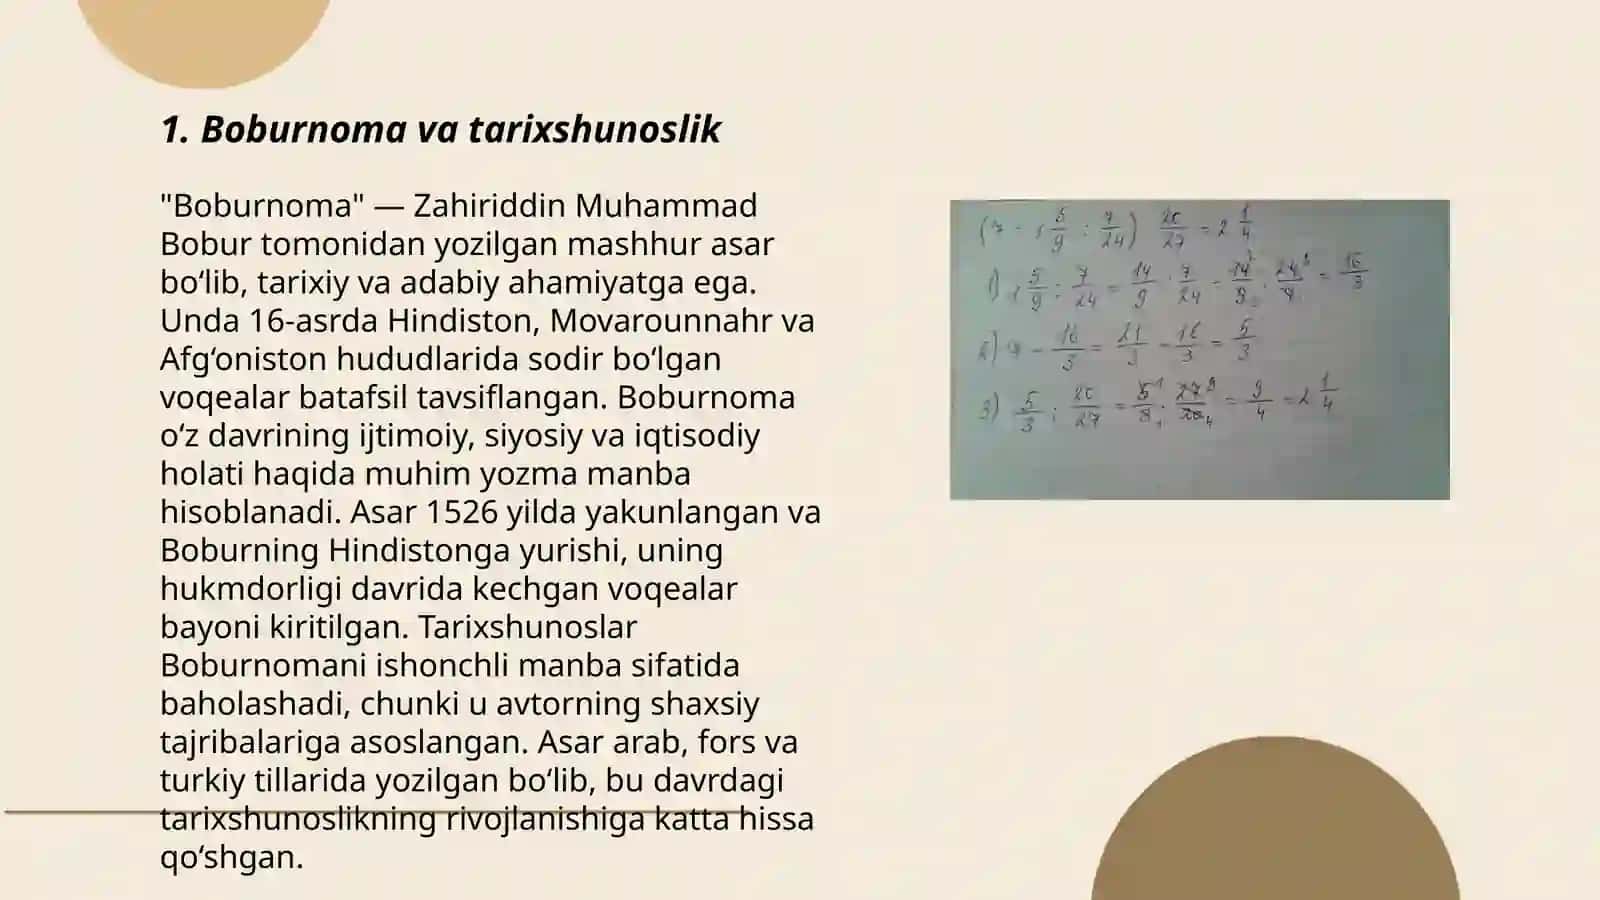 1. Boburnoma va tarixshunoslik
"Boburnoma" — Zahiriddin Muhammad
Bobur tomonidan yozilgan mashhur asar
bo‘lib, tarixiy va adabiy ahamiyatga ega.
Unda 16-asrda Hindiston, Movarounnahr va
Afg‘oniston hududlarida sodir bo‘lgan
voqealar batafsil tavsiflangan. Boburnoma
o‘z davrining ijtimoiy, siyosiy va iqtisodiy
holati haqida muhim yozma manba
hisoblanadi. Asar 1526 yilda yakunlangan va
Boburning Hindistonga yurishi, uning
hukmdorligi davrida kechgan voqealar
bayoni kiritilgan. Tarixshunoslar
Boburnomani ishonchli manba sifatida
baholashadi, chunki u avtorning shaxsiy
tajribalariga asoslangan. Asar arab, fors va
turkiy tillarida yozilgan bo‘lib, bu davrdagi
tarixshunoslikning rivojlanishiga katta hissa
qo‘shgan.
(7 - 1 5/9 : 7/24) : 20/27 = 2 1/4
1) 1 5/9 : 7/24 = 14/9 : 7/24 = 14/9 · 24/7 = 16/3
2) 7 - 16/3 = 21/3 - 16/3 = 5/3
3) 5/3 : 20/27 = 5/3 · 27/20 = 9/4 = 2 1/4